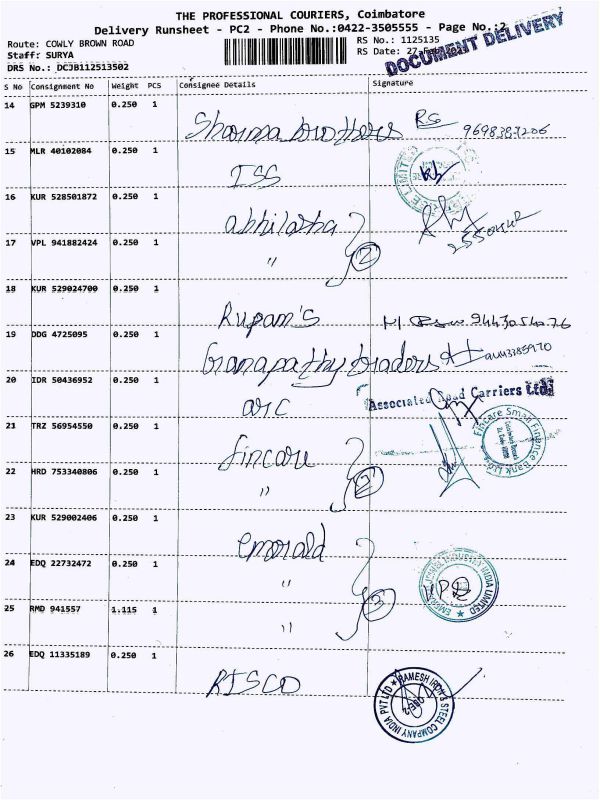 THE PROFESSIONAL COURIERS, Coimbatore
Delivery Runsheet - PC2 - Phone No.:0422-3505555 - Page No.:2
Route: COWLY BROWN ROAD
RS No.: 1125135
Staff: SURYA
RS Date: 27-Feb
DRS No.: DCJB112513502
DOCUMENT DELIVERY
S No Consignment No Weight PCS Consignee Details Signature
14 GPM 5239310 0.250 1
Sharma brothers RS 9698387206
15 MLR 40102084 0.250 1
ISS
16 KUR 528501872 0.250 1
abhilasha
17 VPL 941882424 0.250 1
" 2
18 KUR 529024700 0.250 1
Rupam's
19 DDG 4725095 0.250 1
Ganapathy traders
20 IDR 50436952 0.250 1
arc
Associated Road Carriers Ltd
21 TRZ 56954550 0.250 1
fincare
Fincare Small Finance Bank Ltd
22 HRD 753340806 0.250 1
" 2
23 KUR 529002406 0.250 1
emerald
24 EDQ 22732472 0.250 1
"
INDUSTRY INDIA LIMITED
25 RMD 941557 1.115 1
" 3
26 EDQ 11335189 0.250 1
RISCO
RAMESH IRON & STEEL COMPANY INDIA PVT LTD